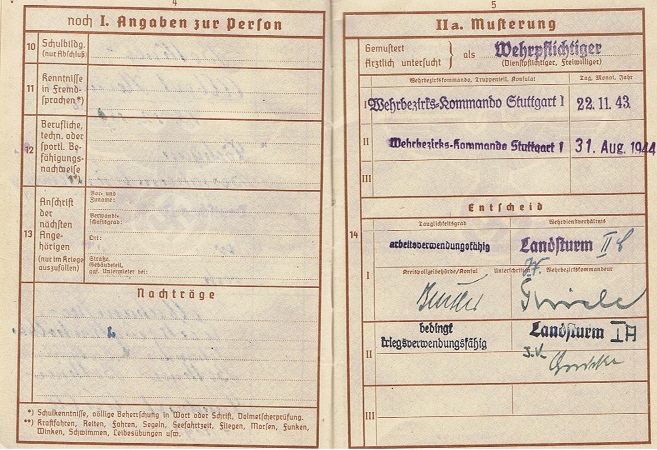 4
noch I. Angaben zur Person
10
Schulbildg.
(nur Abschluß)
11
Kenntnisse
in Fremd-
sprachen*)
12
Berufliche,
techn. oder
sportl. Be-
fähigungs-
nachweise
13
Anschrift
der
nächsten
Ange-
hörigen
(nur im Kriege
auszufüllen)
Vor- und
Zuname:
Verwandt-
schaftsgrad:
Ort:
Straße,
Gebäudeteil,
ggf. Untermieter bei:
Nachträge
*) Schulkenntnisse, völlige Beherrschung in Wort oder Schrift, Dolmetscherprüfung.
**) Kraftfahren, Reiten, Fahren, Segeln, Seefahrtzeit, Fliegen, Morsen, Funken,
Winken, Schwimmen, Leibesübungen usw.
5
IIa. Musterung
Gemustert
Ärztlich untersucht
als Wehrpflichtiger
(Dienstpflichtiger, Freiwilliger)
Wehrbezirkskommando, Truppenteil, Konsulat
Tag, Monat, Jahr
I Wehrbezirks-Kommando Stuttgart I 22.11.43.
II Wehrbezirks-Kommando Stuttgart I 31. Aug. 1944
III
14
Entscheid
Tauglichkeitsgrad
Wehrdienstverhältnis
arbeitsverwendungsfähig
Landsturm II
I
Kreispolizeibehörde/Konsul
Unterschriften
Wehrbezirkskommandeur
II
bedingt
kriegsverwendungsfähig
Landsturm I A
J.V.
III